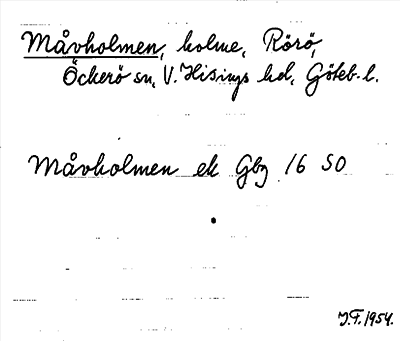 Måvholmen, holme, Rörö,
Öckerö sn, V. Hisings hd, Göteb. l.
Måvholmen ek Gbg 16 SO
J.F. 1954.